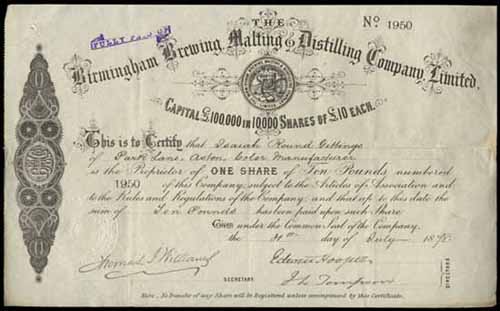 FULLY PAID UP
THE
No 1950
Birmingham Brewing, Malting & Distilling Company, Limited.
CAPITAL £100,000 IN 10,000 SHARES OF £10 EACH.
This is to Certify that Isaiah Round Gittings
of Park Lane, Aston, Color Manufacturer
is the Proprietor of ONE SHARE of Ten Pounds numbered
1950 of this Company, subject to the Articles of Association and
to the Rules and Regulations of the Company; and that up to this date the
sum of Ten Pounds has been paid upon such Share
Given under the Common Seal of the Company,
the day of July 187
Thomas J. Williams
SECRETARY.
DIRECTORS
Note, No Transfer of any Share will be Registered unless accompanied by this Certificate.